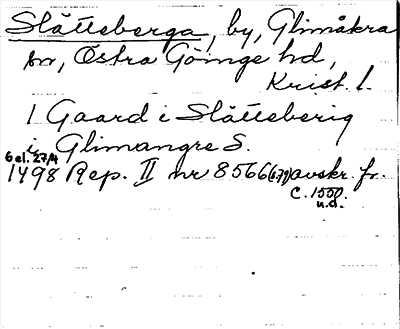 Slätteberga, by, Glimåkra
sn, Östra Göinge hd,
Krist. l.
1 Gaard i Slätteberig
i Glimangre S.
6 el. 27/4
1498 Rep. II nr 8566 (s. 79) avskr. fr.
c. 1550.
u.d.